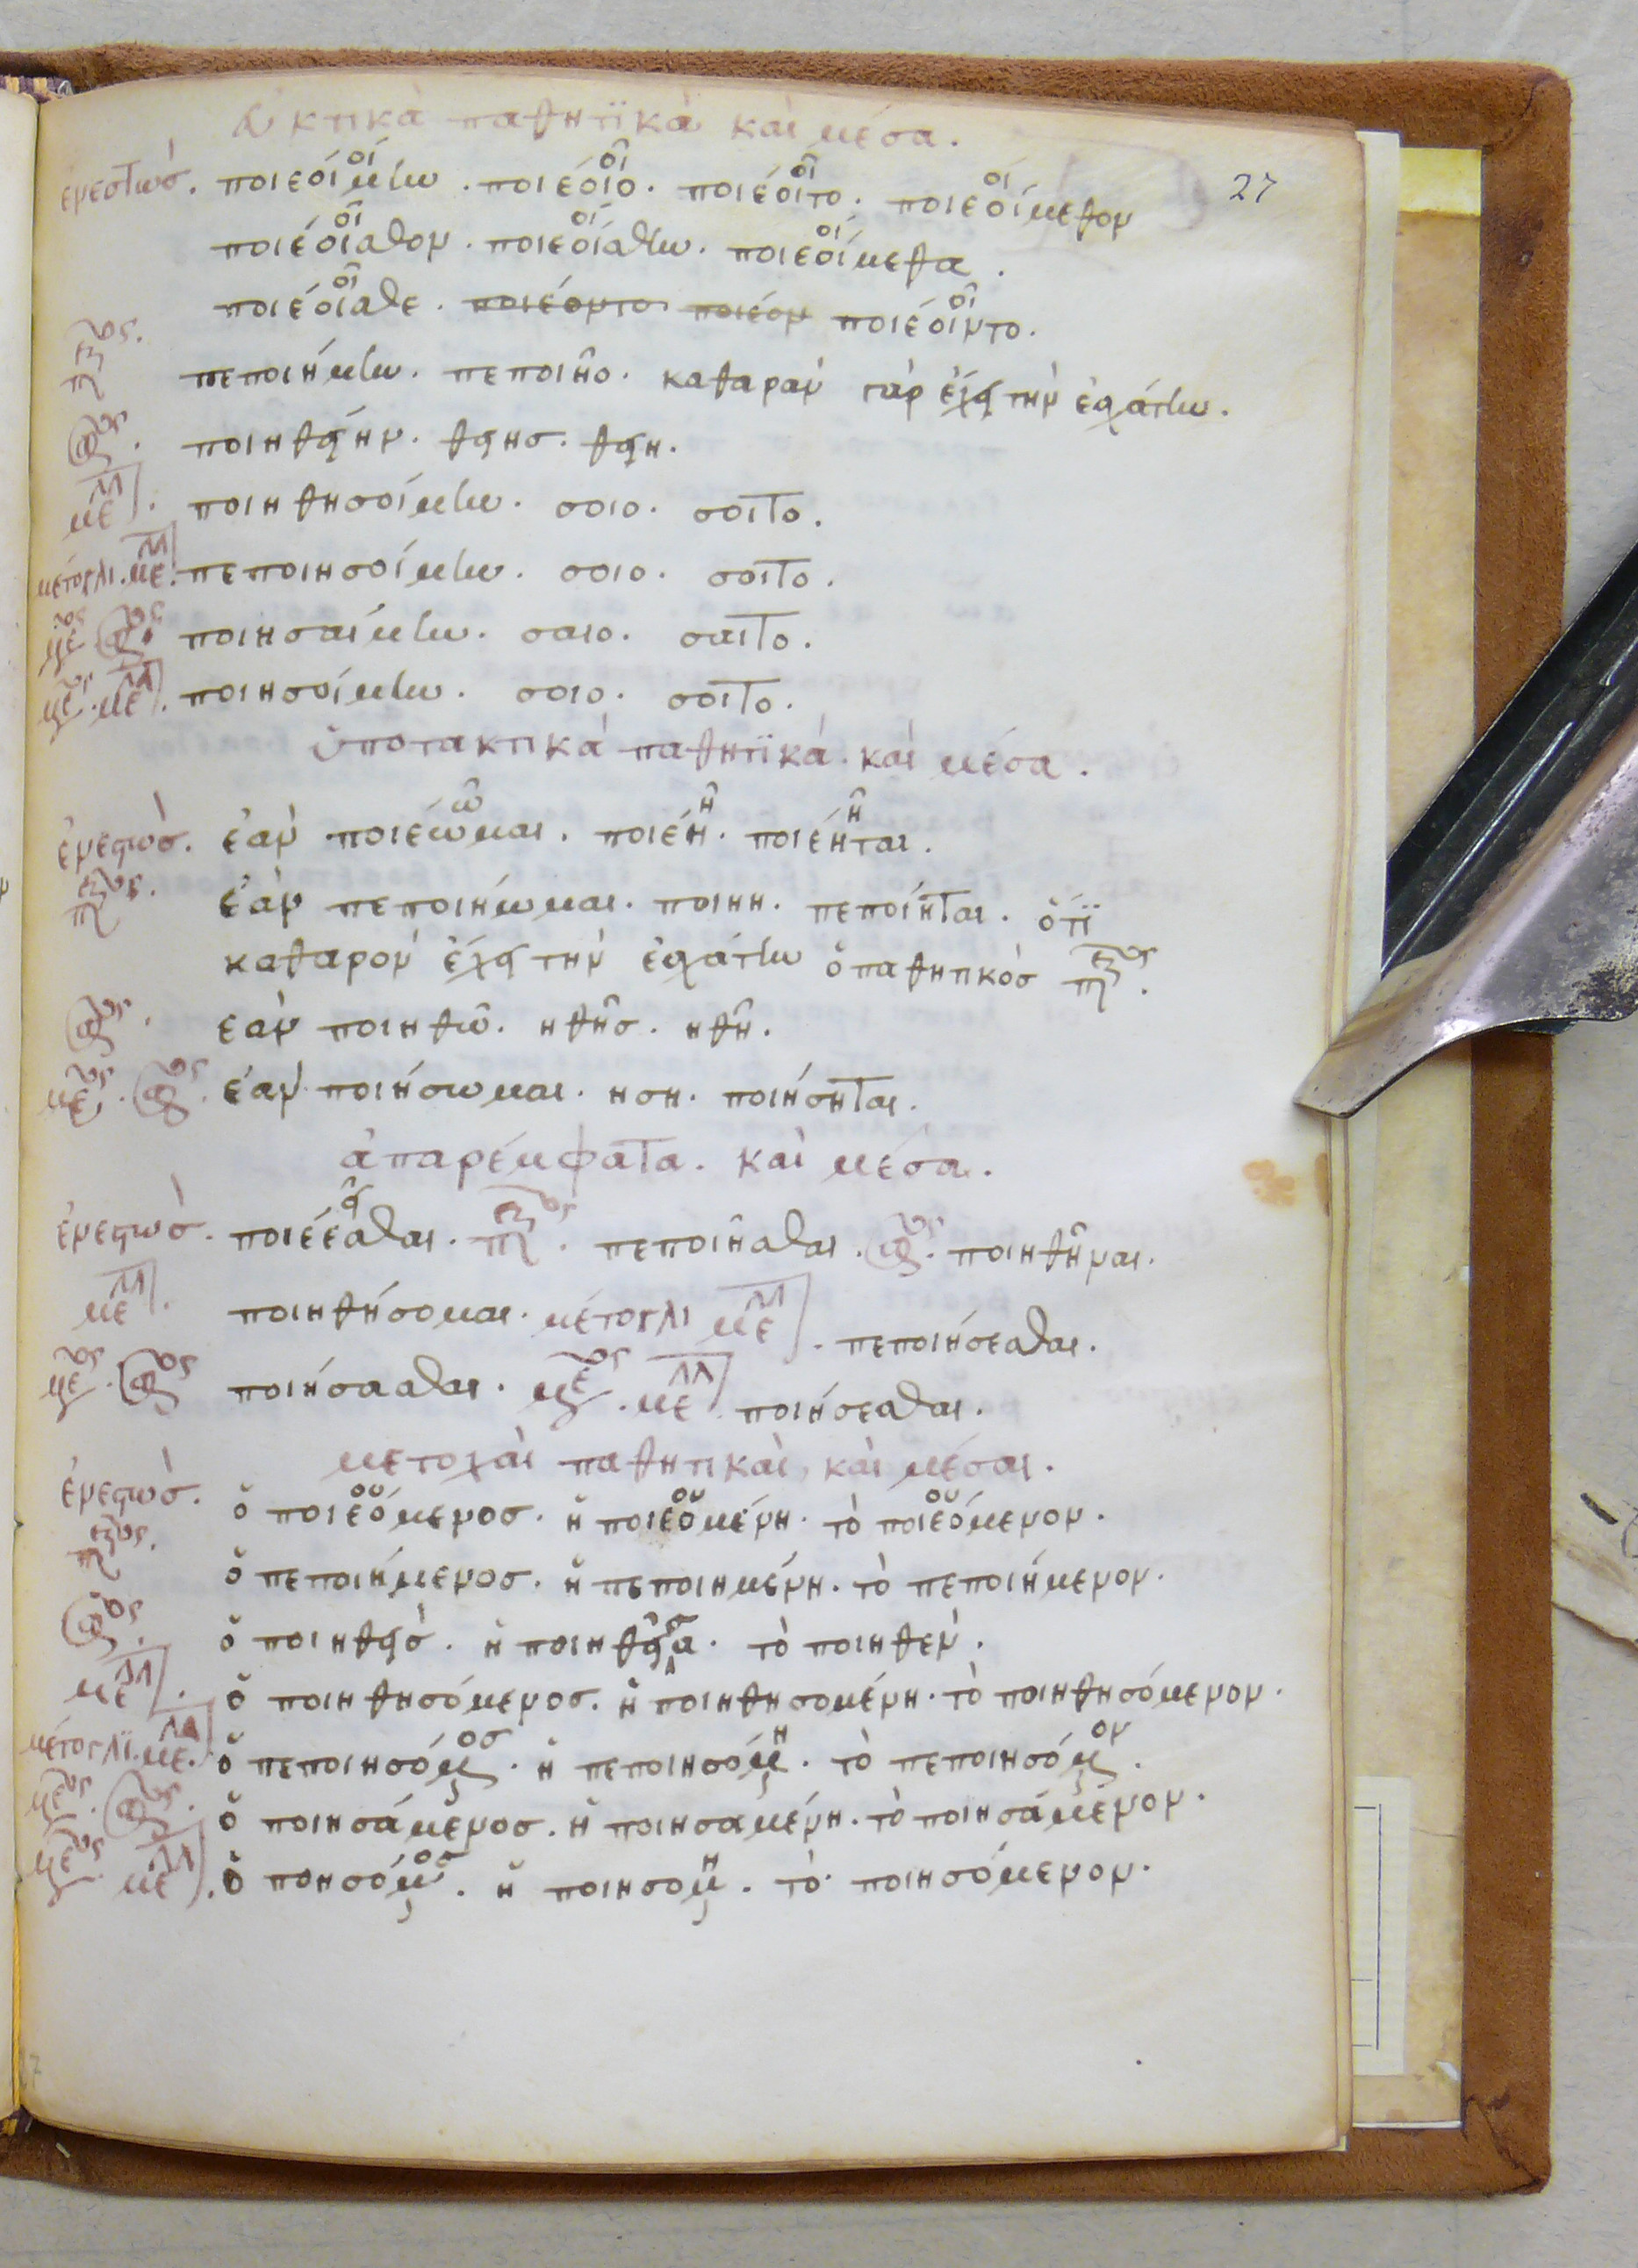 εὐκτικὰ παθητϊκὰ καὶ μέσα.
27
ἐνεστὼσ. ποιεοίμην οί. ποιέοιο οῖ. ποιέοιτο οῖ. ποιεοίμεθον οί
ποιέοισθον οῖ. ποιεοίσθην οί. ποιεοίμεθα οί.
ποιέοισθε οῖ. ποιέοντο ποιέον ποιέοιντο οῖ.
πεποιήμην. πεποιῆο. καθαρὰν γὰρ ἔχει τὴν ἐσχάτην.
ποιηθείην. θείησ. θείη.
με ποιηθησοίμην. σοιο. σοιτο.
μετ' ὀλι. με. πεποιησοίμην. σοιο. σοιτο.
ποιησαίμην. σαιο. σαιτο.
ποιησοίμην. σοιο. σοιτο.
ὑποτακτικὰ παθητϊκά. καὶ μέσα.
ἐνεστὼσ. ἐὰν ποιέωμαι ῶ. ποιέη ῆ. ποιέηται ῆ.
ἐὰν πεποιήωμαι. ποιηη. πεποίηται. ὅτϊ
καθαρὸν ἔχει τὴν ἐσχάτην ὁ παθητικὸσ
ἐὰν ποιηθῶ. ηθῆσ. ηθῆ.
ἐὰν ποιήσωμαι. ηση. ποιήσηται.
ἀπαρέμφατα. καὶ μέσα.
ἐνεστὼσ. ποιέεσθαι εῖ. πεποιῆσθαι. ποιηθῆναι.
με ποιηθήσομαι. μετ' ὀλι με. πεποιήσεσθαι.
ποιήσασθαι. με ποιήσεσθαι.
μετοχαὶ παθητικαὶ, καὶ μέσαι.
ἐνεστὼσ. ὁ ποιεόμενοσ ού. ἡ ποιεομένη ου. τὸ ποιεόμενον ού.
ὁ πεποιήμενοσ. ἡ πεποιημένη. τὸ πεποιήμενον.
ὁ ποιηθείσ. ἡ ποιηθεῖσα. τὸ ποιηθέν.
με. ὁ ποιηθησόμενοσ. ἡ ποιηθησομένη. τὸ ποιηθησόμενον.
μετ' ὀλϊ. με. ὁ πεποιησόμοσ. ἡ πεποιησόμη. τὸ πεποιησόμον.
ὁ ποιησάμενοσ. ἡ ποιησαμένη. τὸ ποιησάμενον.
με. ὁ ποησόμοσ. ἡ ποιησομη. τὸ ποιησόμενον.